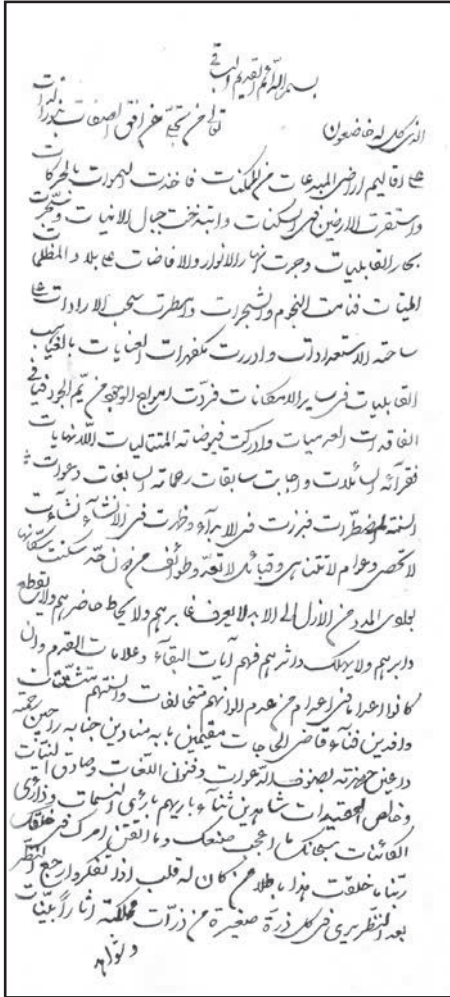 بسم الله القديم الباقي
الذي كل له خاضعون تعالى من تجلى عن افق الصفات
على اقاليم اراضي المبدعات من الممكنات فاخذت السموات بالحركات
واستقرت الارضين في السكنات وانبذخت جبال الانيات وتسجرت
بحار القابليات وجرت انهار الانوار والافاضات على بلاد المظلمات
الميتات فنامت النجوم والشجرات وامطرت سحب الارادات على
ساحة الاستعدادات وادررت مكفهرات العنايات
القابليات في ساير الامكانات فردت امواج الوجود من يم الجود
الفاقدات وادركت فيوضاته المتتاليات اللانهايات
فقرآئه السائلات واجابت سابقات رحمانه السابغات دعوات
السنة المضطرات فبرزت في الابدآء وظهرت في الانشآء نشآت
لا تحصى وعوالم لا تتناهى وقبائل لا تعد وطوائف سكنت سكانها
بوادي المدد من الازل الى الابد لا يعرف غابرهم ولا يحاط حاضرهم ولا ينقطع
دابرهم ولا يهلك داثرهم فهم آيات البقآء وعلامات القدم وان
كانوا اعداما في اعدام من عدم الوانهم متخالفات والسنتهم متشتتات
وافدين فنآء قاضي الحاجات مقيمين بابه منادين جنابه راجين رحمته
داعين حضرته بصنوف الدعوات وفنون اللغات وصادق النيات
وخالص العقيدات شاهدين ثنآء باريهم بارئ النسمات وذارئ
الكائنات سبحانك ما اعجب صنعك وما اتقن امرك في خلقك
ربنا ما خلقت هذا باطلا من كان له قلب اذا تفكر وارجع النظر
بعد النظر يرى في كل ذرة صغيرة من ذرات مملكته اثارا بينات